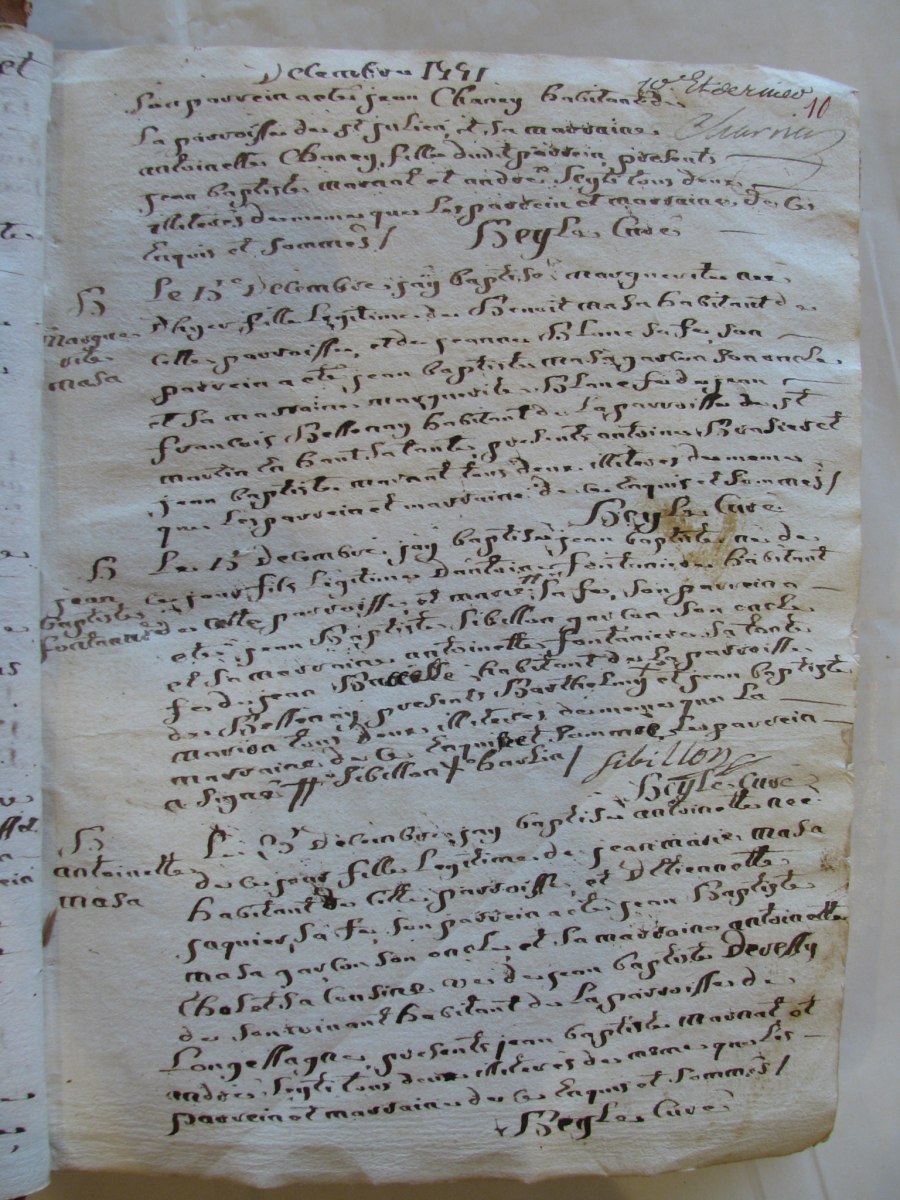 Decembre 1771
10e Et dernier
10
son parrein a eté jean Chaney habitant de
la parroisse de st julien, et sa marraine
antoinette Chaney, fille dudit parrein, presents
jean baptiste marcat et andré tous deux
illiteres de meme que les parrein et marraine de ce
Enquis et sommés / Bey Le Curé
B
Margueritte
masa
Le 13e Decembre jay baptisé margueritte née
D'hyer fille Legitime de Benoit masa habitant de
cette parroisse, et de jeanne Blanc sa fe, son
parrein a eté jean baptiste masa garcon son oncle
et sa marraine margueritte Blanc fe de jean
francois Bessenay habitant de La parroisse de st
martin en haut sa tante, presents antoine Brasier et
jean baptiste marcat tous deux illiteres de meme
que les parrein et marraine de ce Enquis et sommés /
Bey Le Curé
B
jean
baptiste
fontaniere
Le 13 Decembre jay baptisé jean baptiste né de
ce jour, fils Legitime D'antoine fontaniere habitant
de cette parroisse, et marie sa fe, son parrein a
eté jean Baptiste Sibillon garcon son oncle
et sa marraine antoinette fontaniere sa tante
fe de jean habitant de La parroisse
de Bessenay, presents Barthelemy et jean baptiste
tous deux illiteres de meme que La
marraine de ce Enquis et sommée Le parrein
a signé sibillon
sibillon
Bey Le Curé
B
antoinette
masa
Le Decembre jay baptisé antoinette née
de ce jour fille Legitime de jean marie masa
habitant de cette parroisse, et D'Etiennette
jaquier, sa fe, son parrein a eté jean Baptiste
masa garcon son oncle, et sa marraine antoinette
sa Cousine de jean baptiste
de habitant de La parroisse de
Longessagne, presents jean baptiste marcat et
andré tous deux illiteres de meme que Les
parrein et marraine de ce Enquis et sommés /
Bey Le Curé